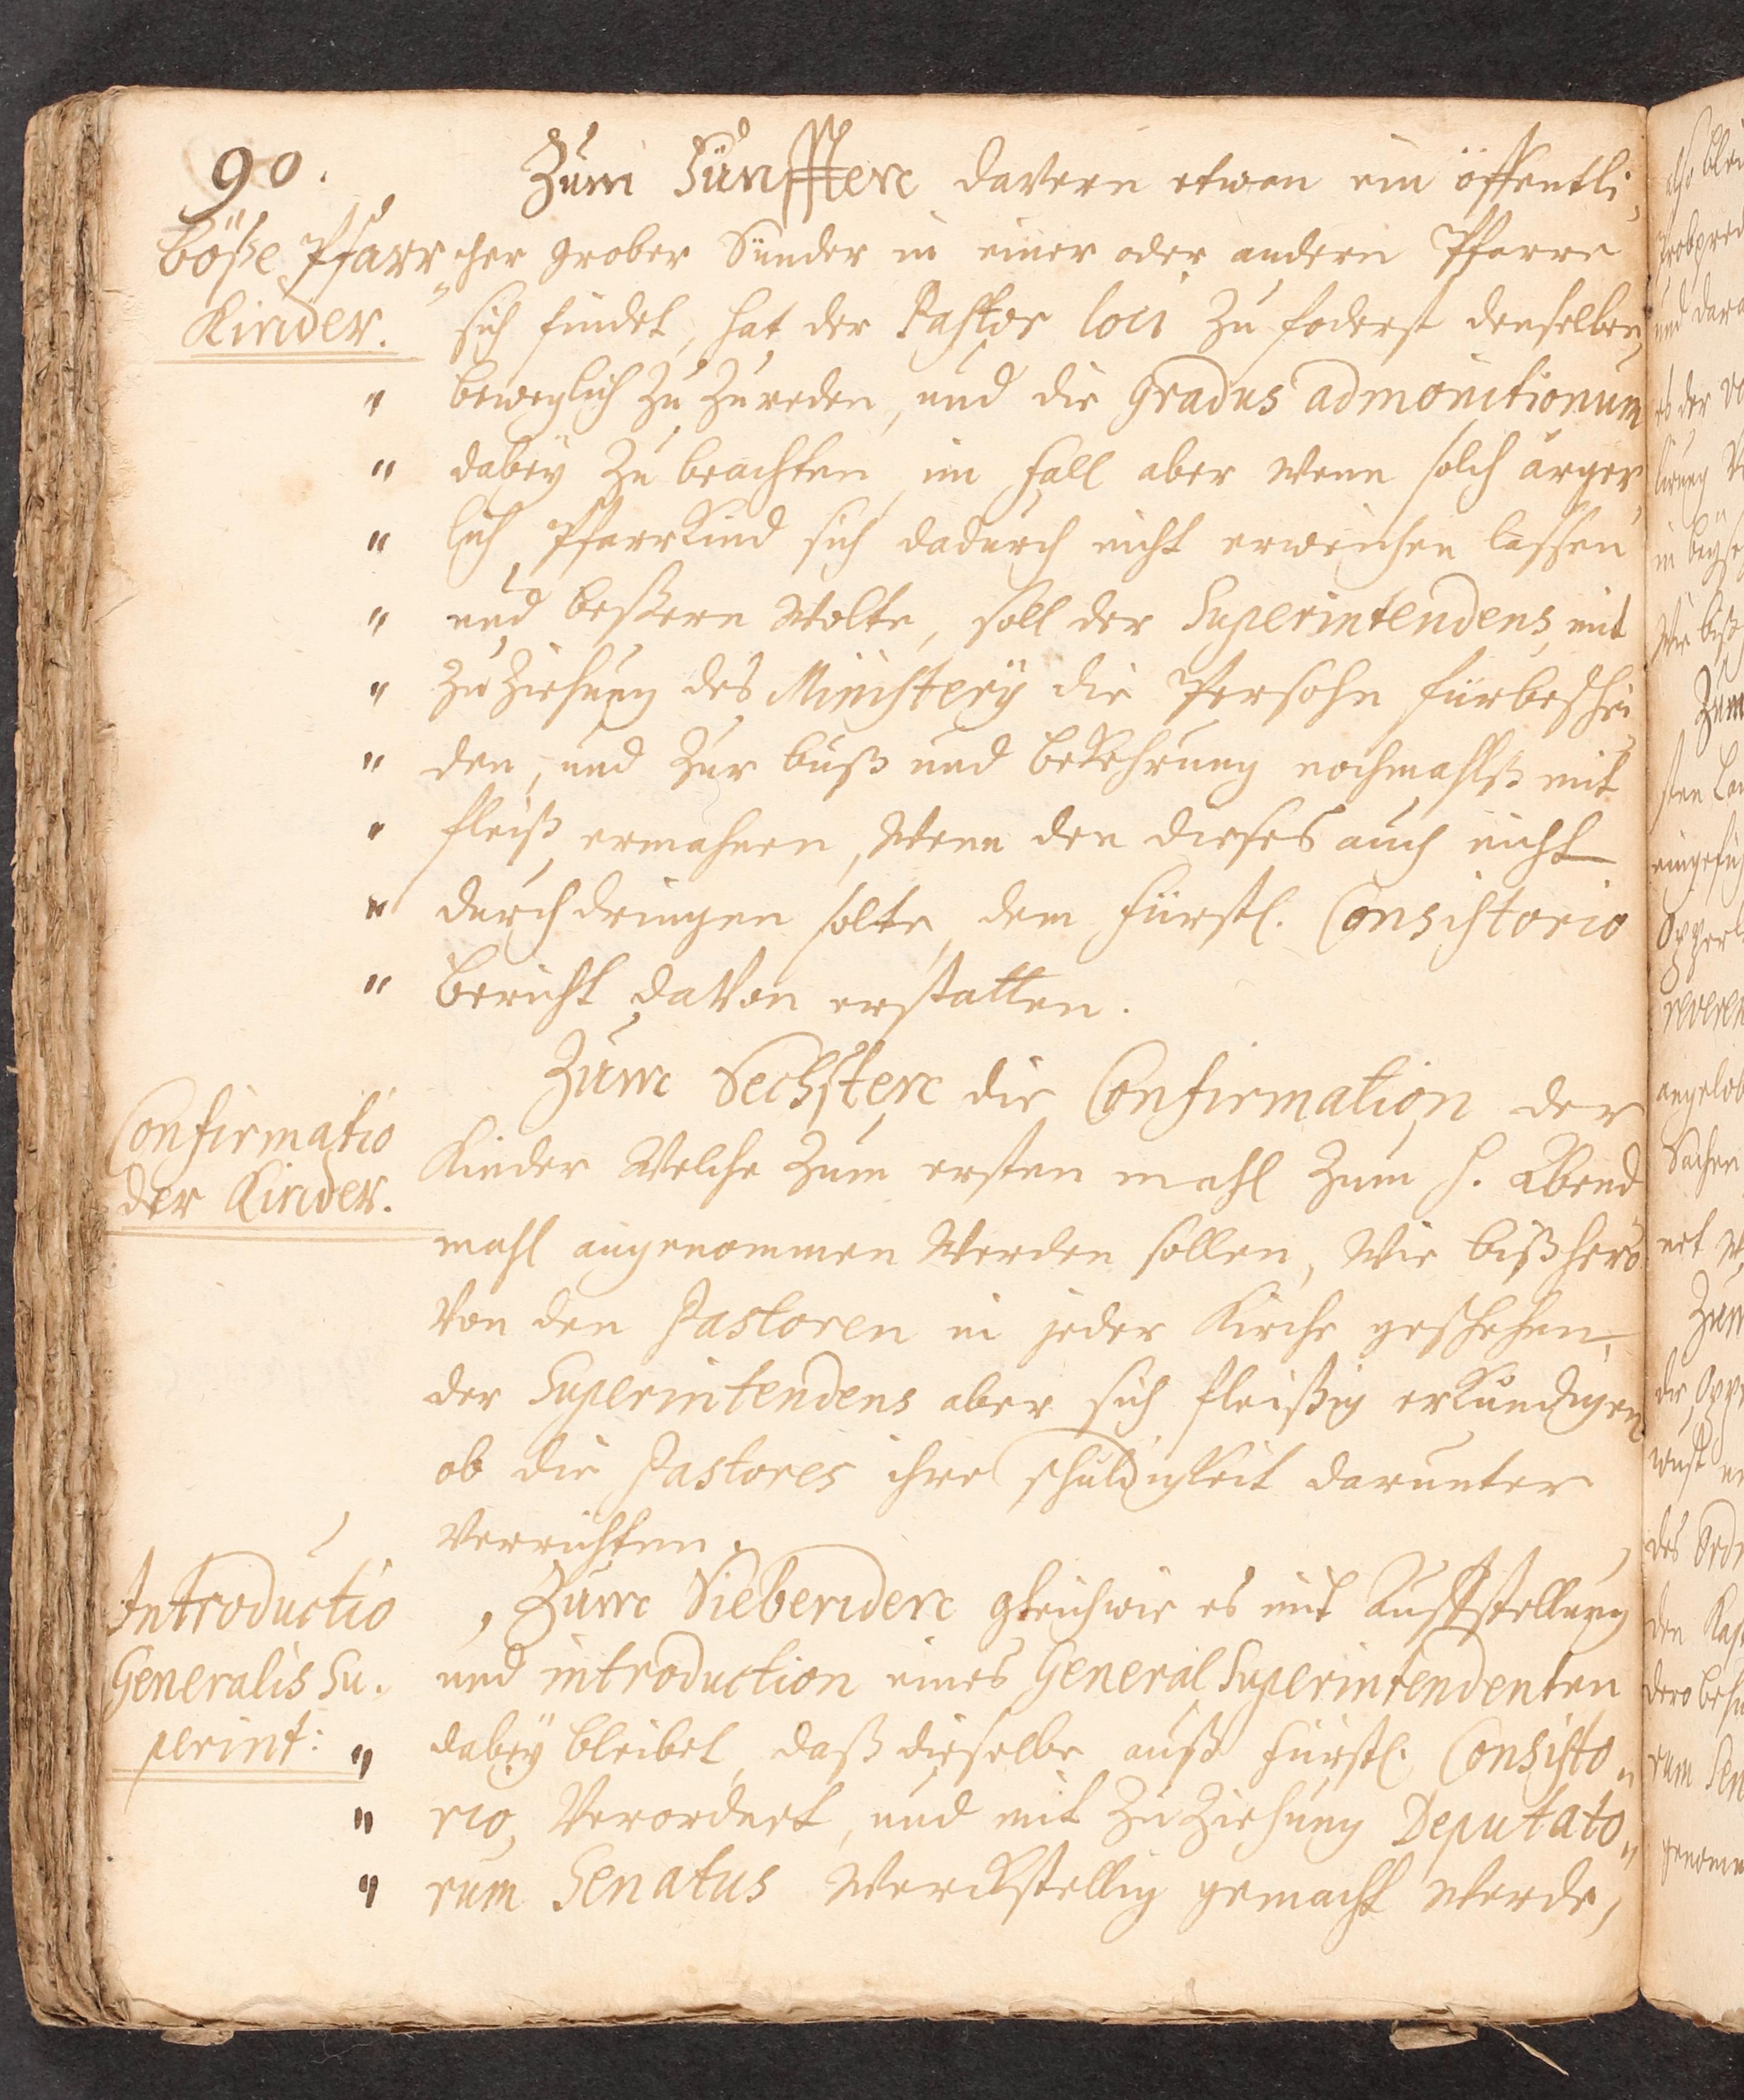 90.
Zum Fünfften davern etwan ein öffentli„
Böße Pfarr„
Kinder.
cher grober Sünder in einer oder andern Pfarre
sich findet, hat der Pastor loci zu foderst denselben
" beweglich zu zureden, und die gradus admonitionum
" dabey zu beachten, im fall aber wenn solch ärger„
" lich Pfarrkind sich dadurch nicht erweichen lassen
" und beßern wolte, soll der Superintendens, mit
" zu Ziehung des Ministerÿ die Persohn fürbeschei
" den, und zur buß und bekehrung nochmahlß mit
" fleiß ermahnen, wenn den dieses auch nicht
" durchdringen solte, dem Fürstl. Consistorio
" Bericht davon erstatten.
Zum Sechsten die Confirmation der
Confirmatio
der Kinder.
Kinder welche zum ersten mahl zum H. Abend
mahl angenommen werden sollen, wie bißhero
von den Pastoren in jeder Kirche geschehen,
der Superintendens aber sich fleißig erkundigen
ob die Pastores ihre schuldigkeit darunter
verrichten.
Introductio
Generalis Su„
perint:
Zum Siebenden gleichwie es mit Auffstellung
und introduction eines General Superintendenten
" dabey bleibet, daß dieselbe auß Fürstl. Consisto„
" rio, verordnet, und mit zu Ziehung Deputato„
" rum Senatus werckstellig gemacht werde,